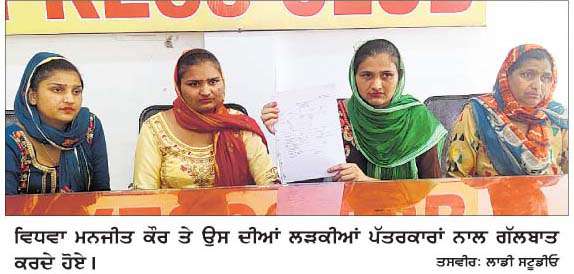 PRESS CLUB
ਵਿਧਵਾ ਮਨਜੀਤ ਕੌਰ ਤੇ ਉਸ ਦੀਆਂ ਲੜਕੀਆਂ ਪੱਤਰਕਾਰਾਂ ਨਾਲ ਗੱਲਬਾਤ
ਕਰਦੇ ਹੋਏ। ਤਸਵੀਰ: ਲਾਡੀ ਸਟੂਡੀਓ